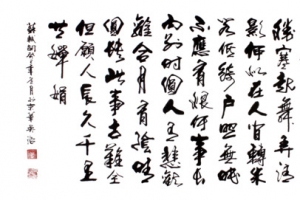 勝寒起舞弄清
影何似在人間轉朱
閣低綺户照無眠
不應有恨何事長
向别時圓人有悲歡
離合月有陰晴
圓缺此事古難全
但願人長久千里
共嬋娟
蘇軾詞